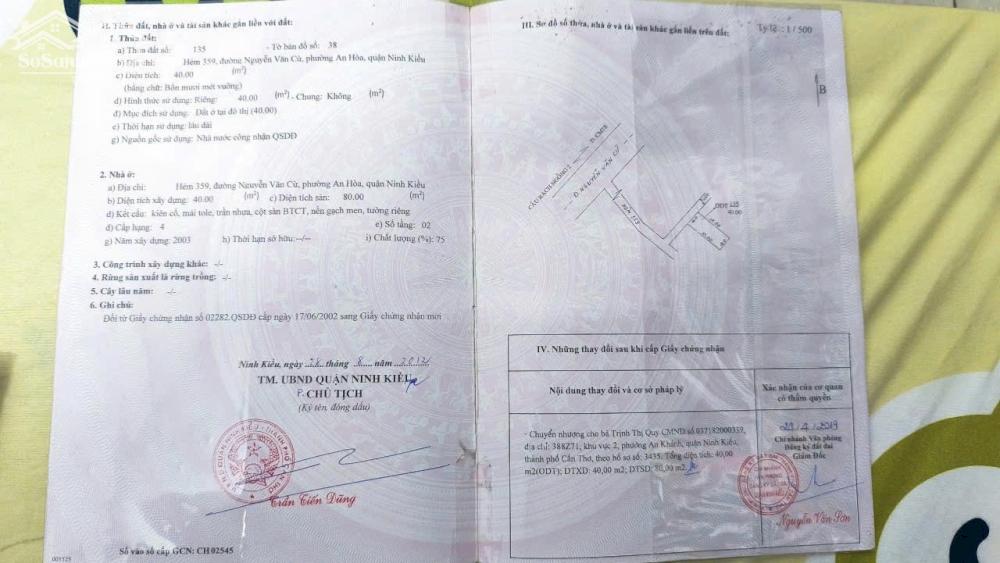 II. Thửa đất, nhà ở và tài sản khác gắn liền với đất:
1. Thửa đất:
a) Thửa đất số: 135 - Tờ bản đồ số: 38
b) Địa chỉ: Hẻm 359, đường Nguyễn Văn Cừ, phường An Hòa, quận Ninh Kiều
c) Diện tích: 40.00 (m²)
(bằng chữ: Bốn mươi mét vuông)
d) Hình thức sử dụng: Riêng: 40.00 (m²) - Chung: Không (m²)
đ) Mục đích sử dụng: Đất ở tại đô thị (40.00)
e) Thời hạn sử dụng: lâu dài
g) Nguồn gốc sử dụng: Nhà nước công nhận QSDĐ
2. Nhà ở:
a) Địa chỉ: Hẻm 359, đường Nguyễn Văn Cừ, phường An Hòa, quận Ninh Kiều
b) Diện tích xây dựng: 40.00 (m²) c) Diện tích sàn: 80.00 (m²)
d) Kết cấu: kiên cố, mái tole, trần nhựa, cột sàn BTCT, nền gạch men, tường riêng
đ) Cấp hạng: 4 e) Số tầng: 02
g) Năm xây dựng: 2003 h) Thời hạn sở hữu: --/-- i) Chất lượng (%): 75
3. Công trình xây dựng khác: -/-
4. Rừng sản xuất là rừng trồng: -/-
5. Cây lâu năm: -/-
6. Ghi chú:
Đổi từ Giấy chứng nhận số 02282.QSDĐ cấp ngày 17/06/2002 sang Giấy chứng nhận mới
Ninh Kiều, ngày 28 tháng 8 năm 2012
TM. UBND QUẬN NINH KIỀU
P. CHỦ TỊCH
(Ký tên, đóng dấu)
Trần Tiến Dũng
Số vào sổ cấp GCN: CH 02545
III. Sơ đồ số thửa, nhà ở và tài sản khác gắn liền trên đất:
Tỷ lệ: 1/500
B
Đ. NGUYỄN VĂN CỪ
40.00
IV. Những thay đổi sau khi cấp Giấy chứng nhận
Nội dung thay đổi và cơ sở pháp lý
Xác nhận của cơ quan
có thẩm quyền
- Chuyển nhượng cho bà Trịnh Thị Quy CMND số 037182000359,
địa chỉ: 388Z71, khu vực 2, phường An Khánh, quận Ninh Kiều,
thành phố Cần Thơ, theo hồ sơ số: 3435. Tổng diện tích: 40,00
m2(ODT); DTXD: 40,00 m2; DTSD: 80,00 m2.
29/4/2019
Chi nhánh Văn phòng
Đăng ký đất đai
Giám Đốc
Nguyễn Văn Sơn